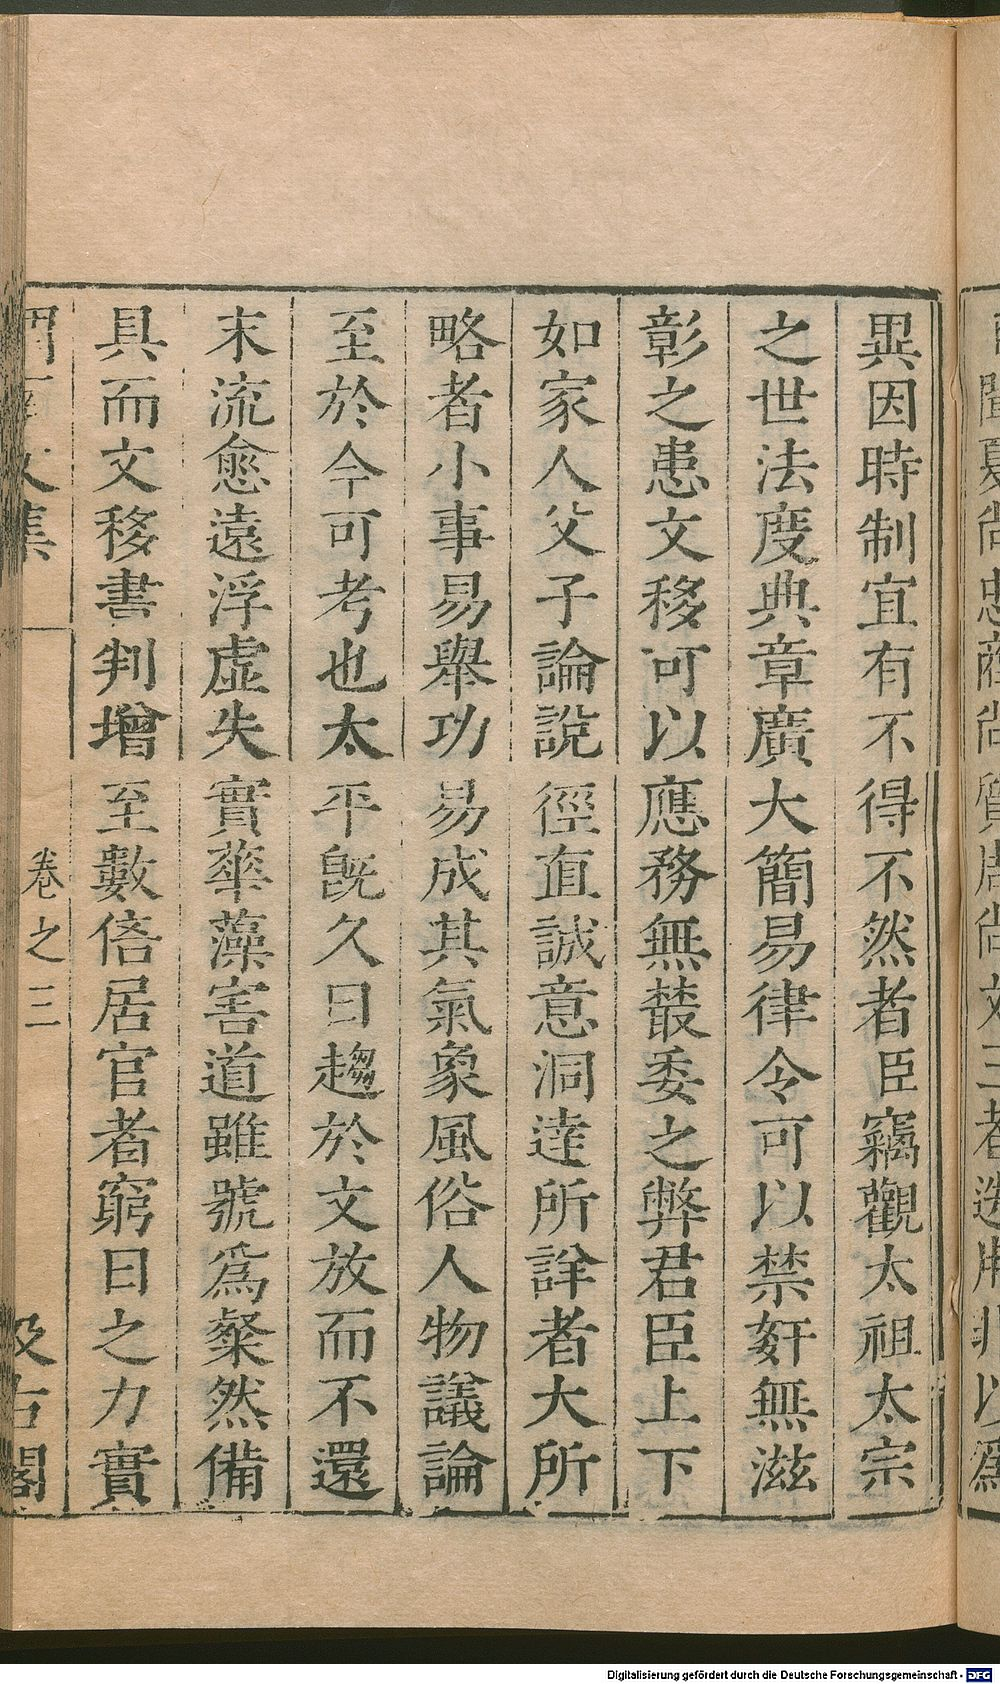 異因時制宜有不得不然者臣竊觀太祖太宗
之世法度典章廣大簡易律令可以禁奸無滋
彰之患文移可以應務無叢委之弊君臣上下
如家人父子論說徑直誠意洞達所詳者大所
略者小事易舉功易成其氣象風俗人物議論
至於今可考也太平旣久日趨於文放而不還
末流愈遠浮虛失實華藻害道雖號爲粲然備
具而文移書判增至數倍居官者窮日之力實
文集 卷之三 汲古閣
Digitalisierung gefördert durch die Deutsche Forschungsgemeinschaft - DFG